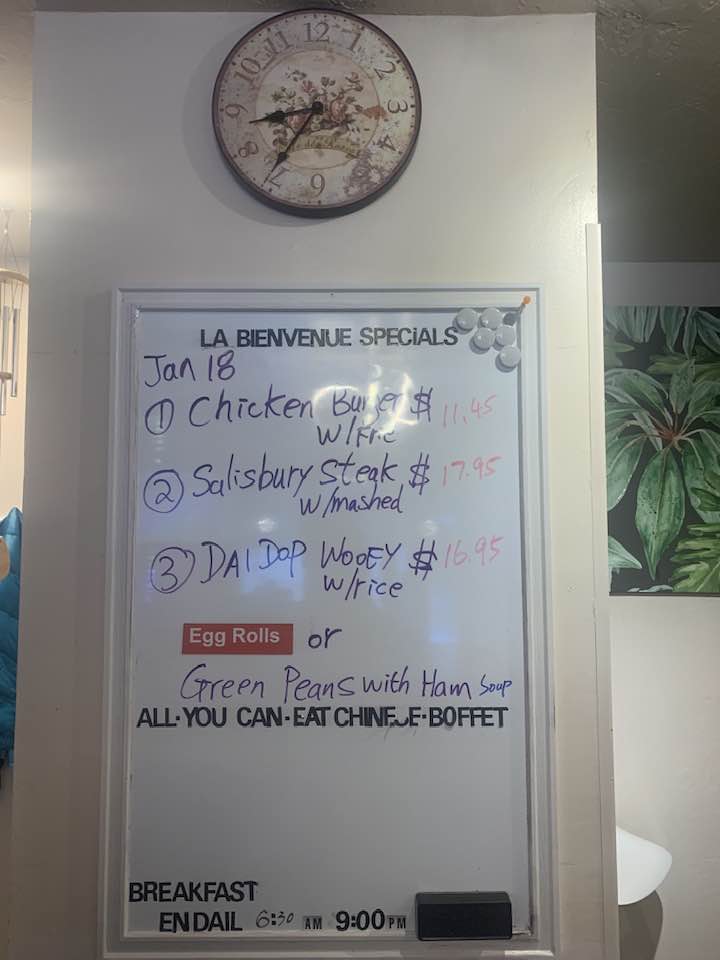 11 12 1
10 2
9 3
8 4
7 6
LA BIENVENUE SPECiALS
Jan 18
① Chicken Burger $ 11.45
W/Frie
② Salisbury Steak $ 17.95
w/mashed
③ DAI DOP WOOEY $ 16.95
w/rice
Egg Rolls or
Green Peans with Ham Soup
ALL·YOU CAN·EAT CHINESE·BOFFET
BREAKFAST
ENDAIL 6:30 AM 9:00 PM